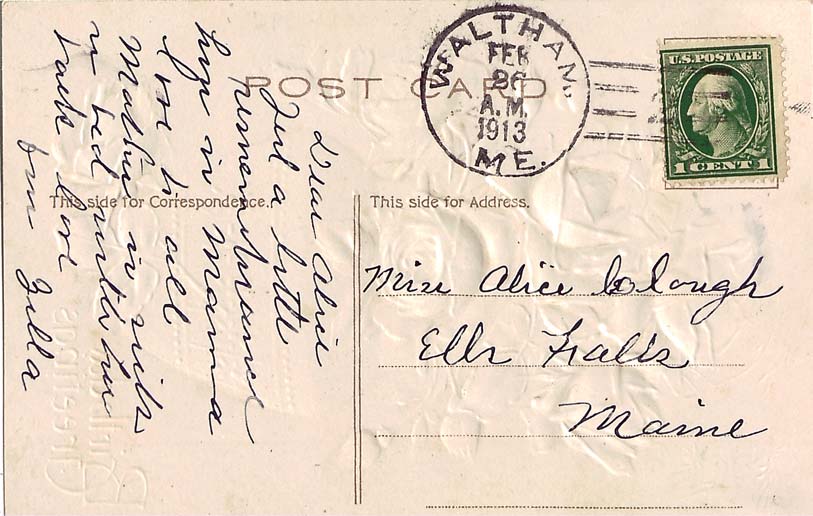 POST CARD
WALTHAM,
FEB
26
A.M.
1913
ME.
U.S. POSTAGE
1 CENT 1
This side for Correspondence.
This side for Address.
Dear Alice
Just a little
remembrance
in Mama
Love to all
Mother is sick
in bed with
love
from Zella
Miss Alice Clough
Ells Falls
Maine
Greetings
Birthday